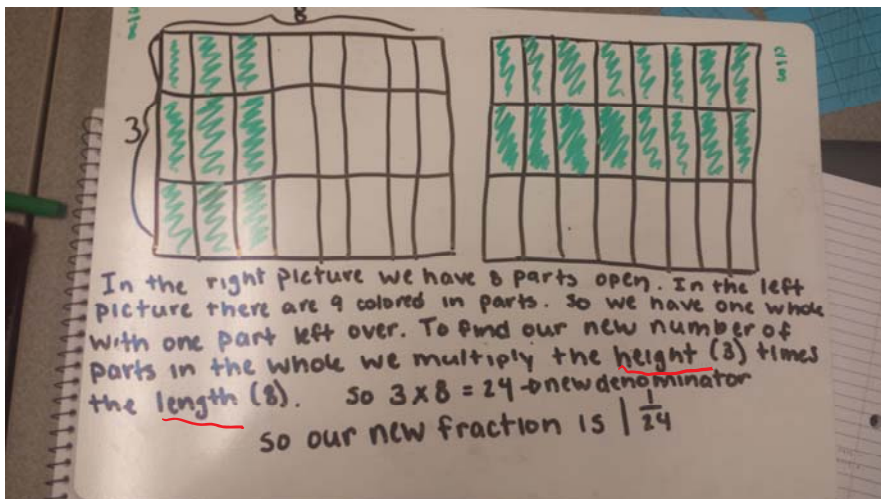 8
3
In the right picture we have 8 parts open. In the left
picture there are 9 colored in parts. So we have one whole
with one part left over. To find our new number of
parts in the whole we multiply the height (3) times
the length (8). So 3 x 8 = 24 → new denominator
so our new fraction is 1 1/24